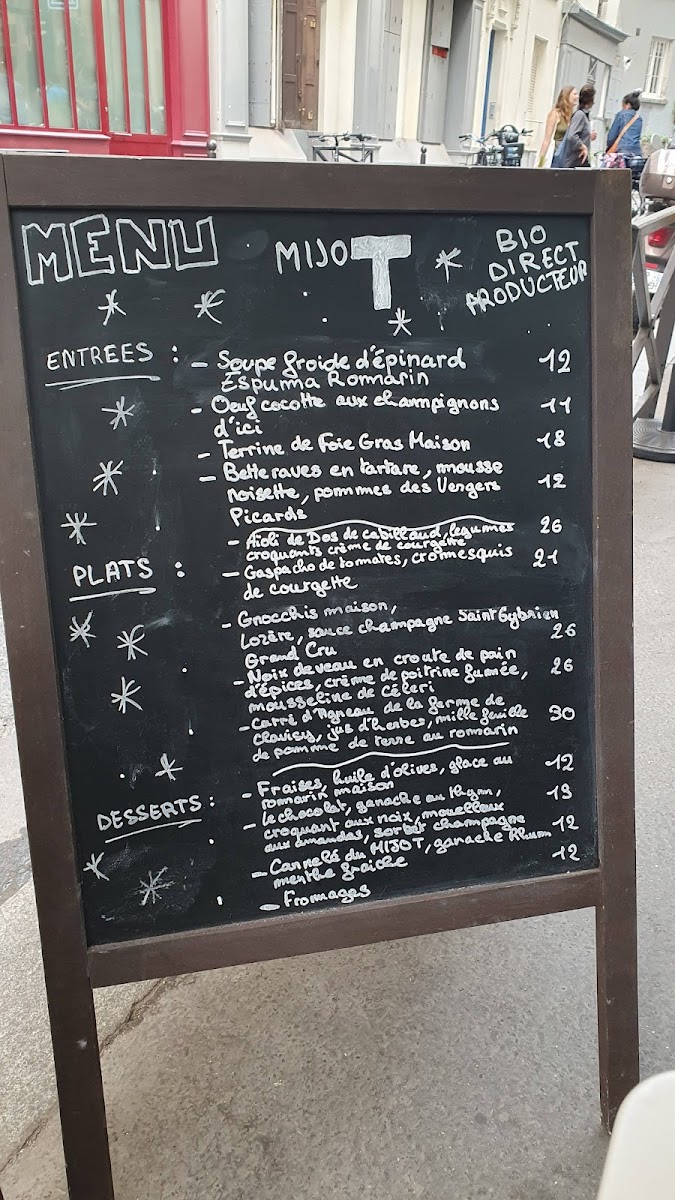 MENU
MIJOT
BIO
DIRECT
PRODUCTEUR
ENTREES :
- Soupe froide d'épinard 12
Espuma Romarin
- Oeuf cocotte aux champignons 11
d'ici
- Terrine de Foie Gras Maison 18
- Betteraves en tartare, mousse 12
noisette, pommes des Vergers
Picards
- Aïoli de Dos de cabillaud, legumes 26
croquants crème de courgette
PLATS :
- Gaspacho de tomates, cromesquis 21
de courgette
- Gnocchis maison,
Lozère, sauce champagne Saint Gybrien
Grand Cru 26
- Noix de veau en croute de pain 26
d'épices, crème de poitrine fumée,
mousseline de céleri
- Carré d'Agneau de la ferme de 30
Clavisy, jus d'herbes, mille feuille
de pomme de terre au romarin
DESSERTS :
- Fraises, huile d'olives, glace au 12
romarin maison
- Le chocolat, ganache au thym, 13
croquant aux noix, mouelleux
aux amandes, sorbet champagne
- Cannelé du MIJOT, ganache Rhum 12
menthe fraiche
- Fromages 12